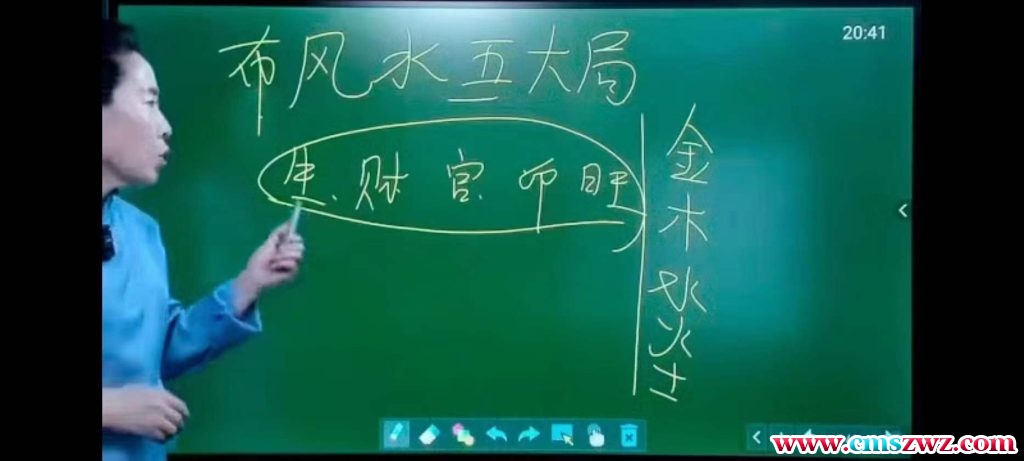 20:41
布风水五大局
生.财官.印旺
金
木
水
火
土
www.cmszwz.com